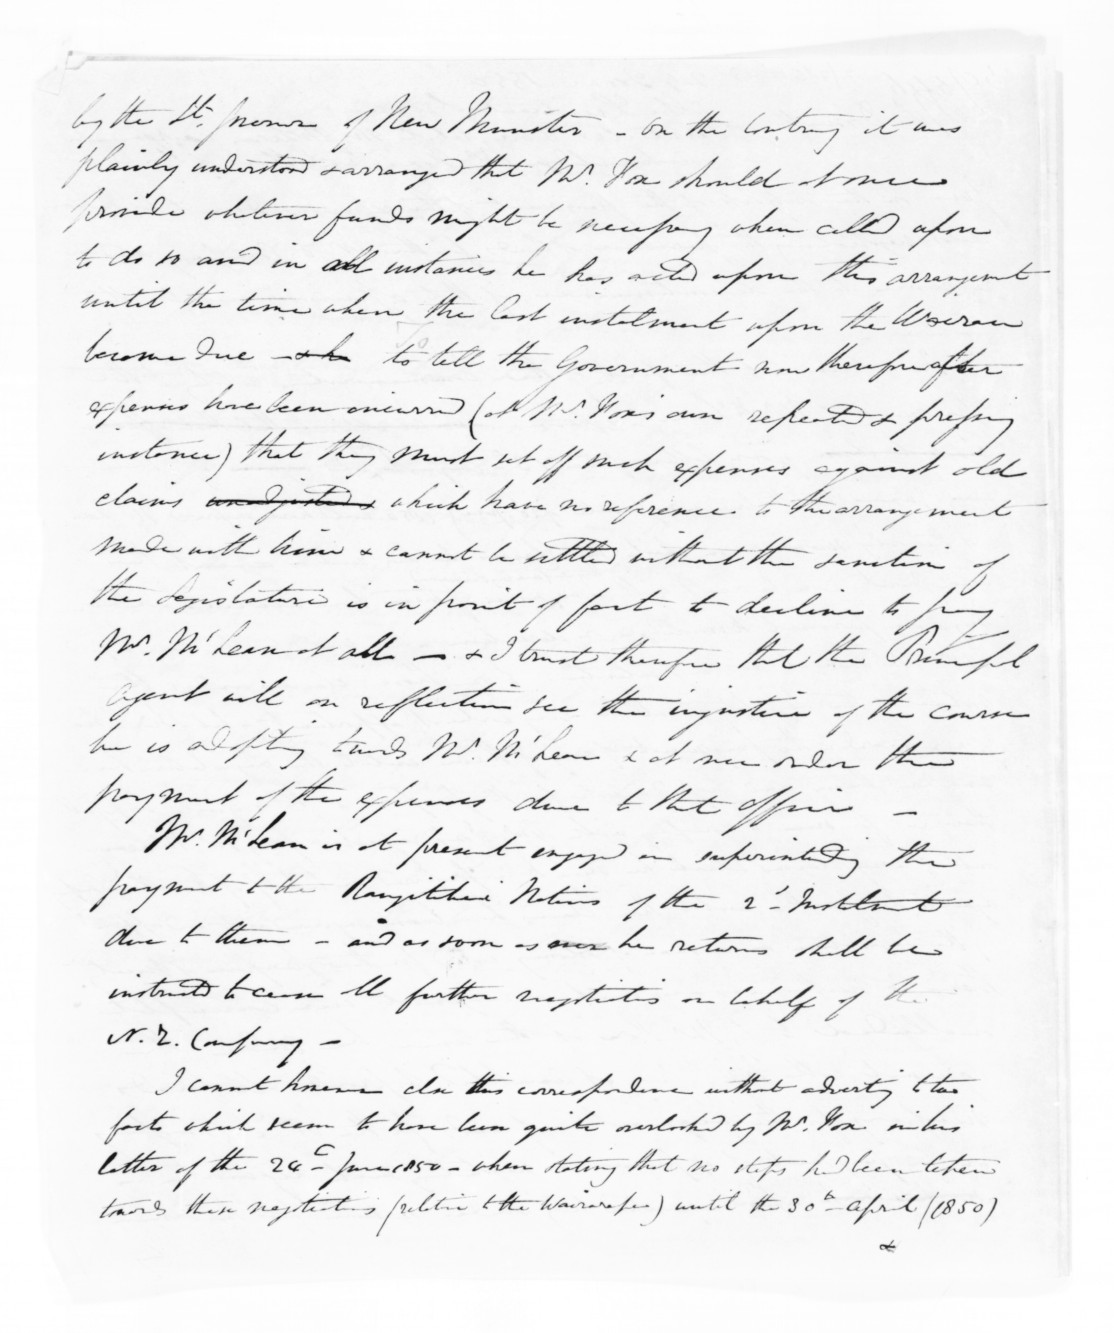 by the Lt. Governor of New Munster - On the contrary it was
plainly understood & arranged that Mr. Fox should at once
provide whatever funds might be necessary when called upon
to do so and in all instances he has acted upon this arrangement
until the time when the last instalment upon the Wairau
became due - & he to tell the Government now therefore after
expenses have been incurred (at Mr. Fox's own repeated & pressing
instance) that they must set off such expenses against old
claims unadjusted & which have no reference to the arrangement
made with him & cannot be settled without the sanction of
the Legislature is in point of fact to decline to pay
Mr. McLean at all - & I trust therefore that the Principal
Agent will on reflection see the injustice of the course
he is adopting towards Mr. McLean & at once order the
payment of the expenses due to that officer -
Mr. McLean is at present engaged in superintending the
payment to the Rangitikei Natives of the 2d Instalment
due to them - and as soon as ever he returns shall be
instructed to cease all further negotiations on behalf of the
N. Z. Company -
I cannot however close this correspondence without adverting to two
facts which seem to have been quite overlooked by Mr. Fox in his
letter of the 24th June 1850 - when stating that no steps had been taken
towards these negotiations (relative to the Wairarapa) until the 30th April (1850)
&